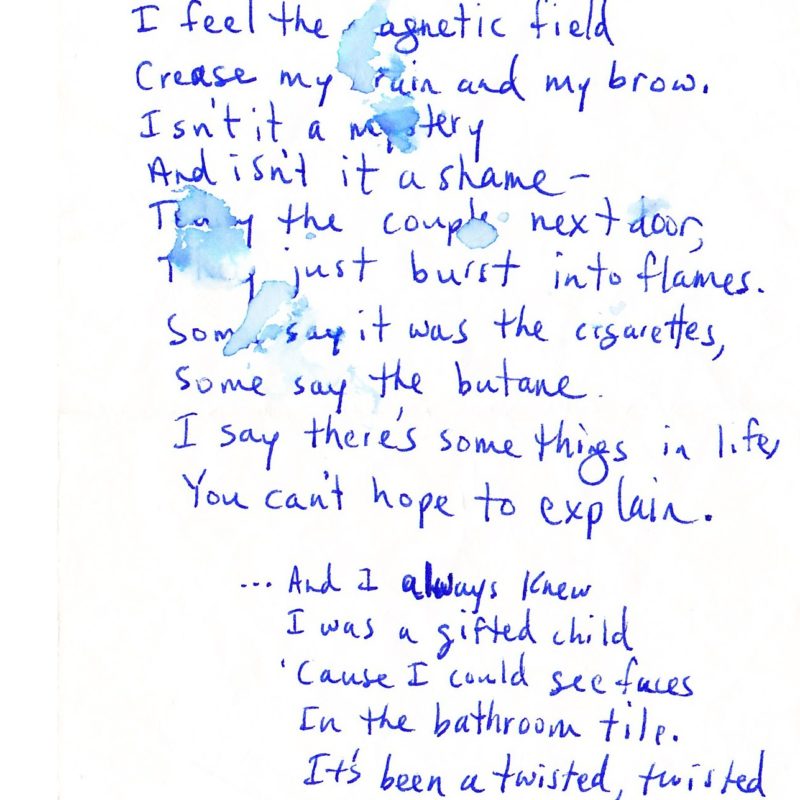 I feel the magnetic field
Crease my brain and my brow.
Isn't it a mystery
And isn't it a shame –
the couple next door,
They just burst into flames.
Some say it was the cigarettes,
Some say the butane.
I say there's some things in life,
You can't hope to explain.
... And I always knew
I was a gifted child
'Cause I could see faces
In the bathroom tile.
It's been a twisted, twisted